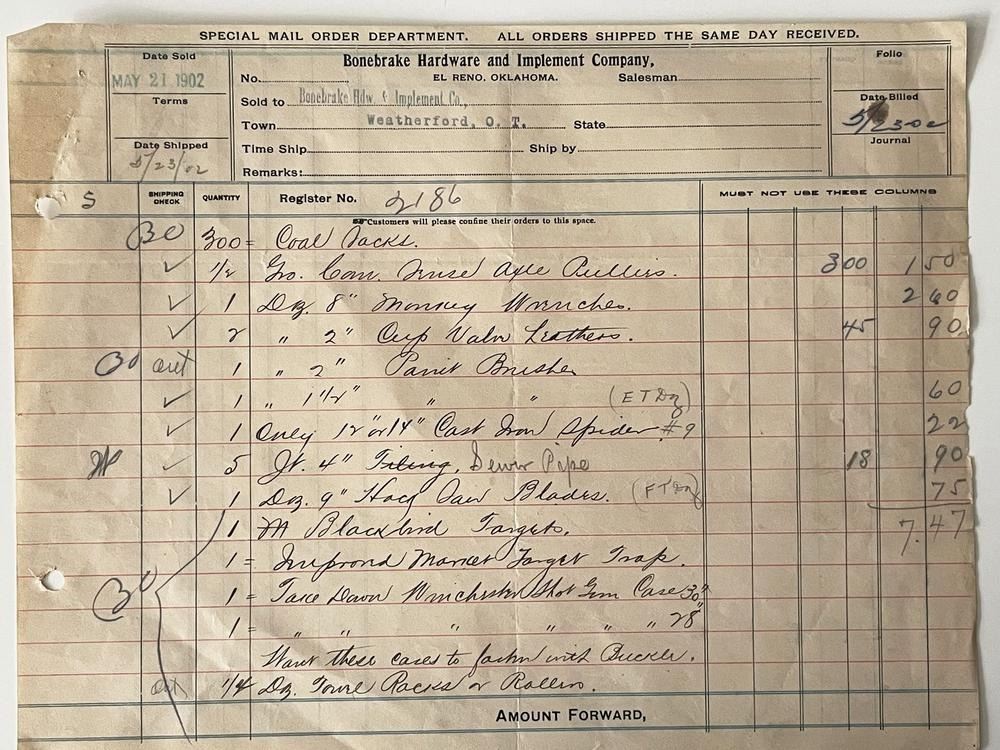 SPECIAL MAIL ORDER DEPARTMENT. ALL ORDERS SHIPPED THE SAME DAY RECEIVED.
Date Sold
MAY 21 1902
Terms
Date Shipped
5/23/02
Bonebrake Hardware and Implement Company,
No. EL RENO, OKLAHOMA. Salesman
Sold to Bonebrake Hdw. & Implement Co.,
Town Weatherford, O. T. State
Time Ship Ship by
Remarks:
Folio
Date Billed
5/23-02
Journal
S SHIPPING CHECK QUANTITY Register No. 2186 MUST NOT USE THESE COLUMNS
Customers will please confine their orders to this space.
BO 300 = Coal Sacks.
✓ 1/2 Gro. Com. Axle Pullers. 300 150
✓ 1 Doz. 8" Monkey Wrenches. 260
✓ 2 " 2" Cup Valve Leathers. 45 90
BO out 1 " 2" Paint Brushes
✓ 1 " 1 1/2" " " (ETDoz) 60
✓ 1 Only 12" or 14" Cast Iron Spider #9 22
✓ 5 Jt. 4" Tiling, Sewer Pipe 18 90
✓ 1 Doz. 9" Hack Saw Blades. (FTDoz) 75
1 M Blackbird Targets. 7.47
1 = Improved Target Trap.
BO 1 = Take Down Winchester Shot Gun Case 30"
1 = " " " " " " 28"
Want these cases to fasten with Buckle.
out 1/4 Doz. Towel Racks or Rollers.
AMOUNT FORWARD,